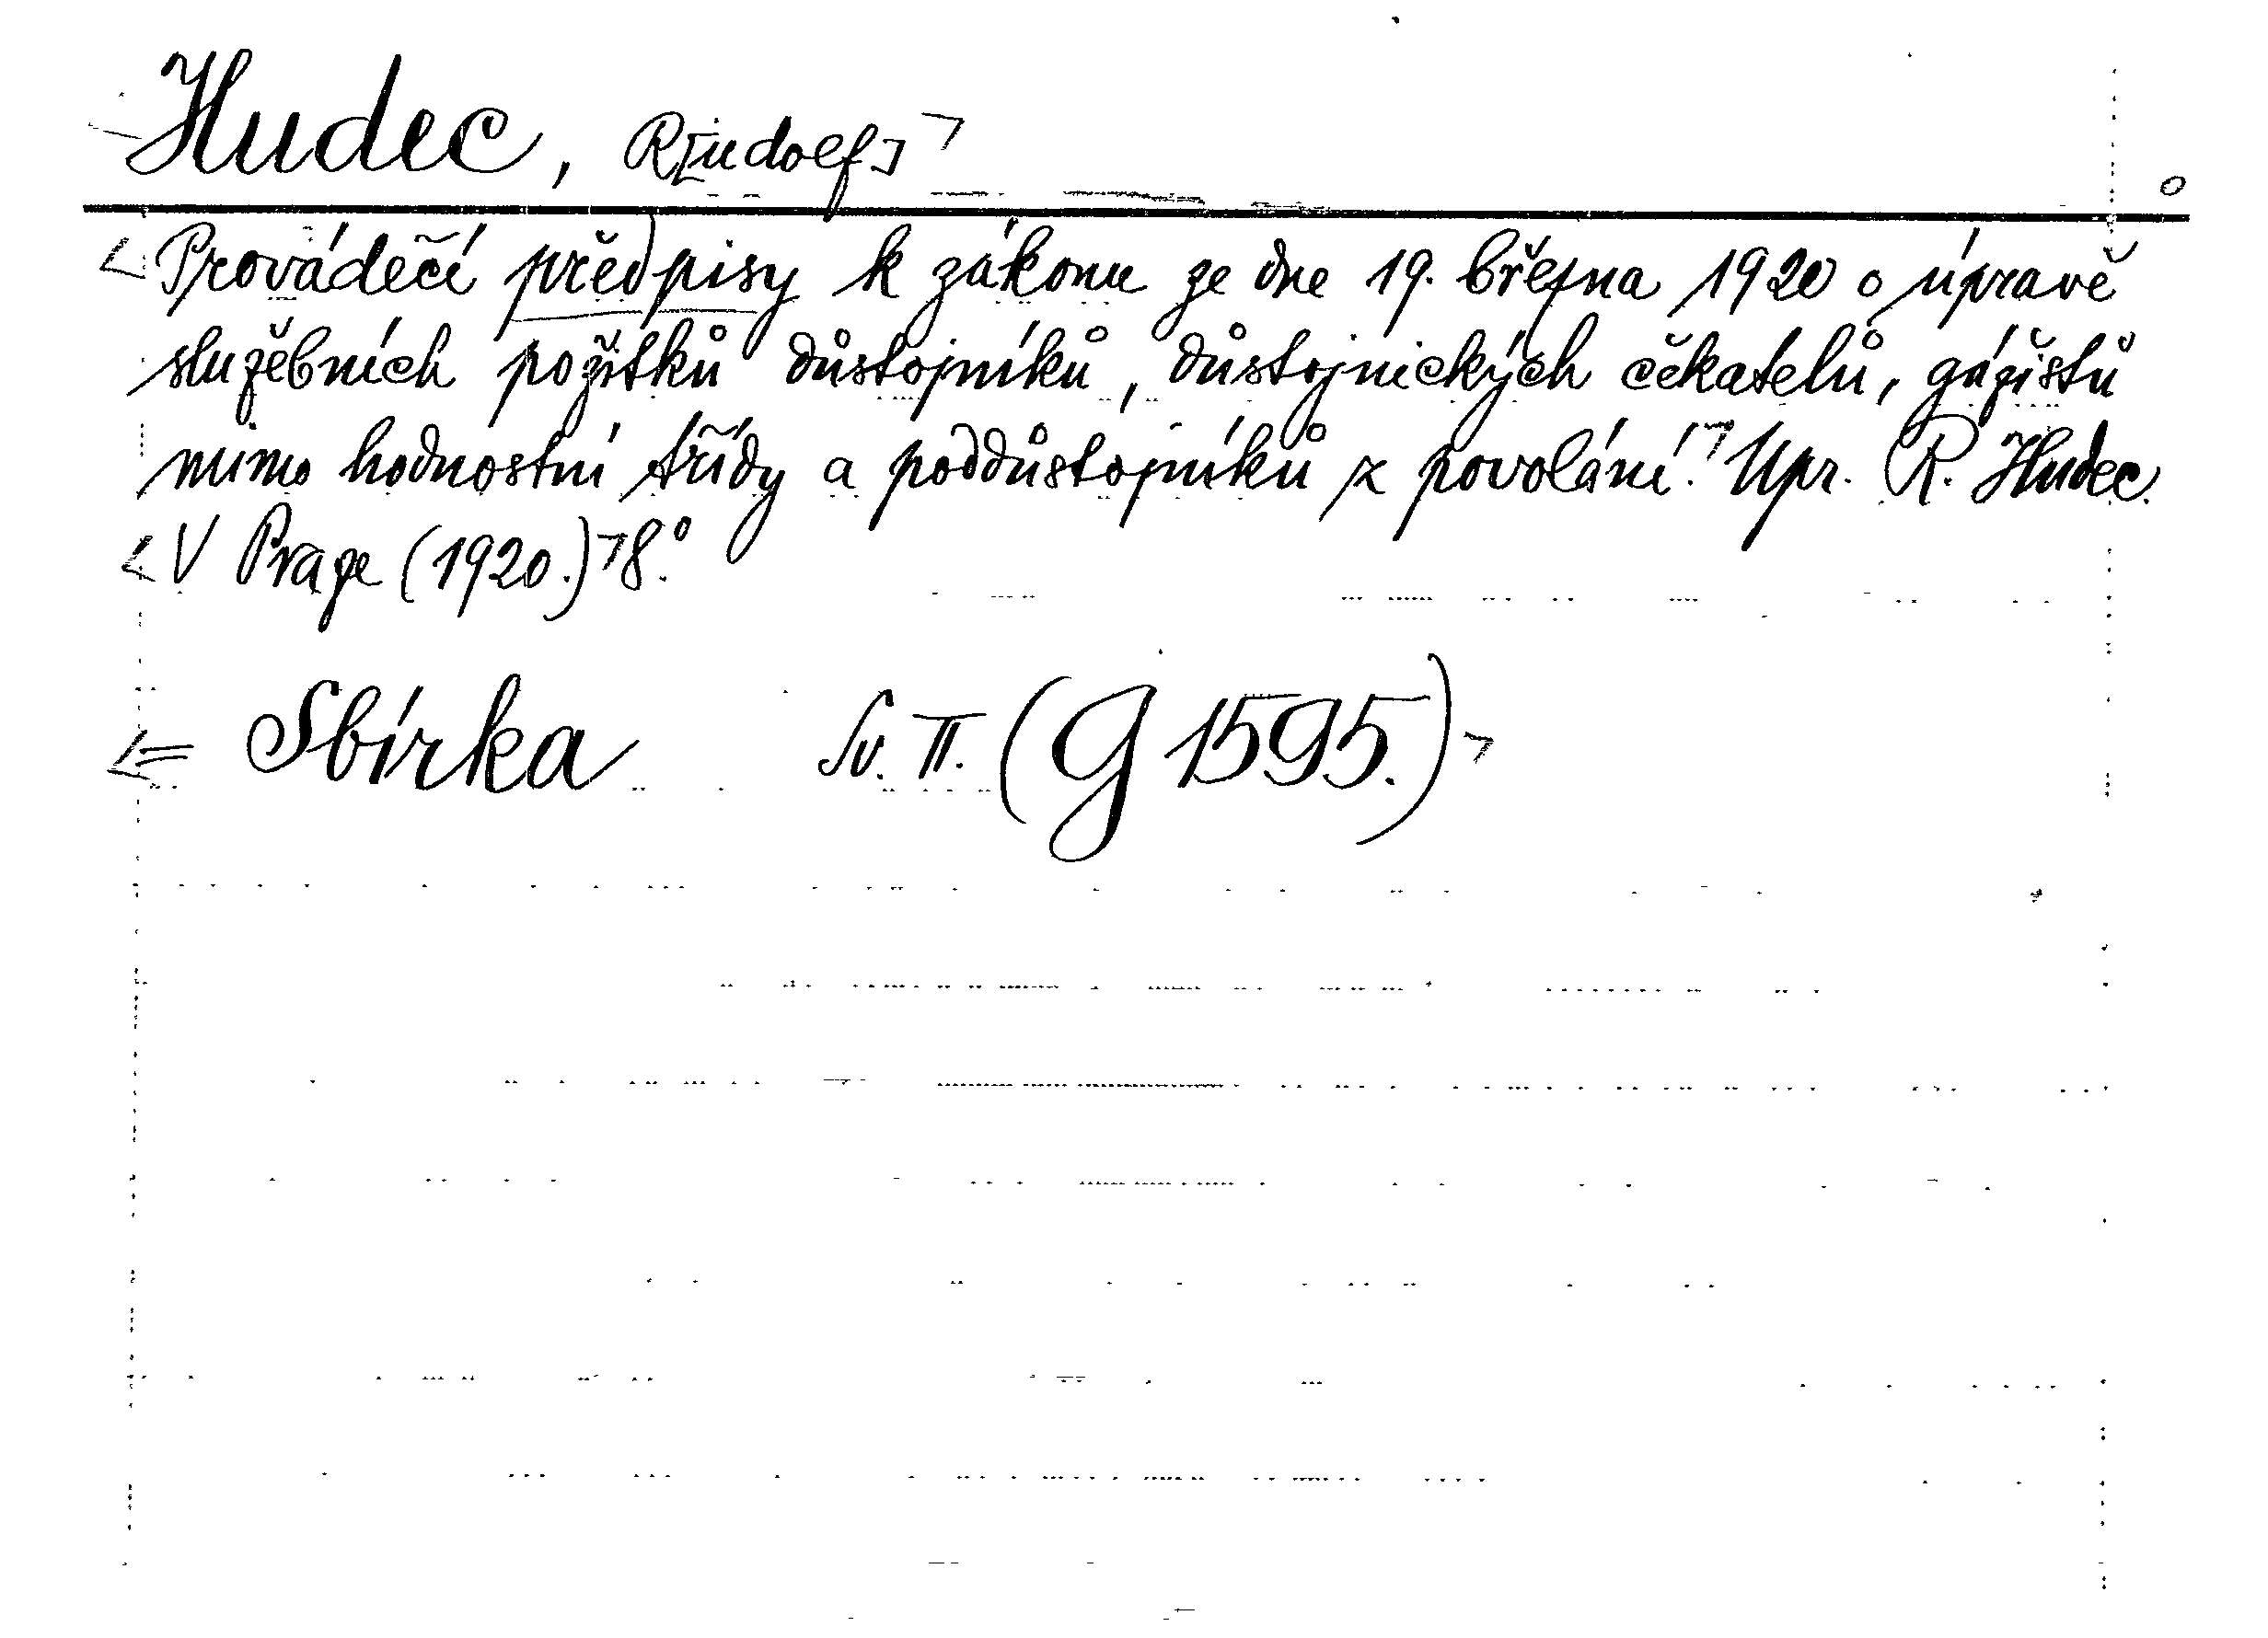 Hudec, R[udolf]
Prováděčí předpisy k zákonu ze dne 19. března 1920 o úpravě
služebních požitků důstojníků, důstojnických čekatelů, gážistů
mimo hodnostní třídy a poddůstojníků z povolání. Upr. R. Hudec.
V Praze (1920.) 8.°
= Sbírka Sv. II. (G 1595.)